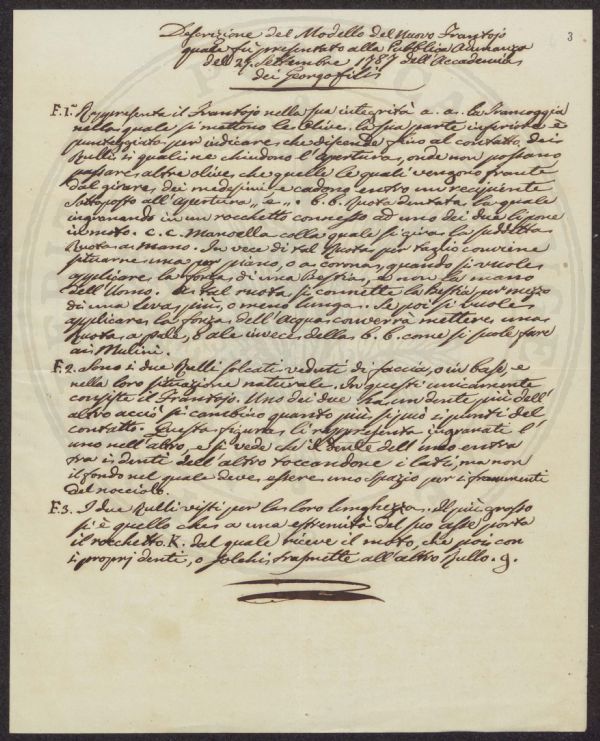 3
Descrizione del Modello del Nuovo Frantojo
quale fù presentato alla Pubblica Adunanza
del 29. Settembre 1787 dell'Accademia
dei Georgofili
F. 1.ª Rappresenta il Frantojo nella sua integrità a. a. la Tramoggia
nella quale si mettono le Olive. la sua parte inferiore è
punteggiata per indicare che discende fino al contatto dei
Rulli, i quali ne chiudono l'apertura, onde non possano
passare altre olive che quelle le quali vengono frante
dal girare dei medesimi e cadono entro un recipiente
sottoposto all'apertura "e". b. b. Ruota dentata la quale
ingranando in un rocchetto connesso ad uno dei due li pone
in moto. c. c. Manovella colla quale si gira la suddetta
Ruota a Mano. In vece di tal Ruota per taglio conviene
situarne una per piano, o a corona, quando si vuole
applicare la forza di una Bestia, e non la mano
dell'Uomo. A tal ruota si connette la Bestia per mezzo
di una leva più, o meno lunga. Se poi si vuole
applicare la forza dell'Acqua converrà mettere una
Ruota a pale, o ale invece della b. b. come si suole fare
ai Mulini.
F. 2. Sono i due Rulli solcati veduti di faccia, o in base e
nella loro situazione naturale. In questi unicamente
consiste il Frantojo. Uno dei due ha un dente più dell'
altro acciò si cambino quanto più si può i punti del
contatto. Questa figura li rappresenta ingranati l'
uno nell'altro, e si vede che il dente dell'uno entra
tra i denti dell'altro toccandone i lati, ma non
il fondo nel quale deve essere uno spazio per i frammenti
del nocciolo.
F. 3. I due Rulli visti per la loro lunghezza. Il più grosso
si è quello che a una estremità del suo asse porta
il rocchetto K. dal quale riceve il moto, che poi con
i proprj denti, o solchi trasmette all'altro Rullo. g.